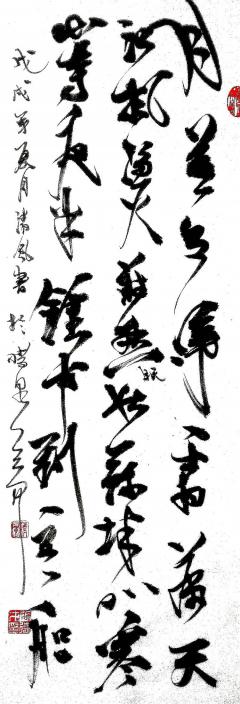 月落烏啼霜滿天
江楓漁火對愁眠姑蘇城外寒
山寺夜半鐘声到客船
戊戌年夏月清風書於